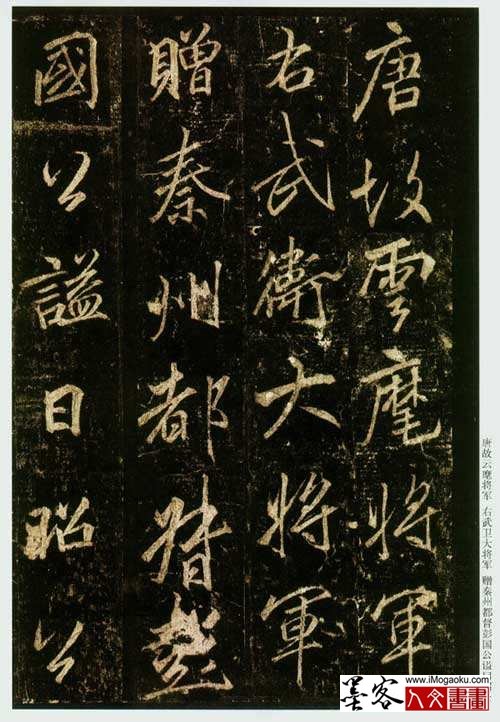 唐故雲麾将軍
右武衛大将軍
贈秦州都督彭
國公謚曰昭公
唐故云麾将军 右武卫大将军 赠秦州都督彭国公谥
墨客
www.iMogaoku.com
人文書畫